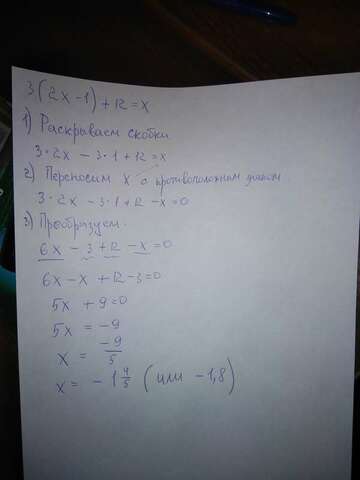 3(2x-1)+12=x
1) Раскрываем скобки
3·2x - 3·1+12=x
2) Переносим x с противоположным знаком
3·2x - 3·1+12-x=0
3) Преобразуем.
6x - 3+12-x=0
6x-x+12-3=0
5x+9=0
5x=-9
x=-9/5
x=-1 4/5 (или -1,8)